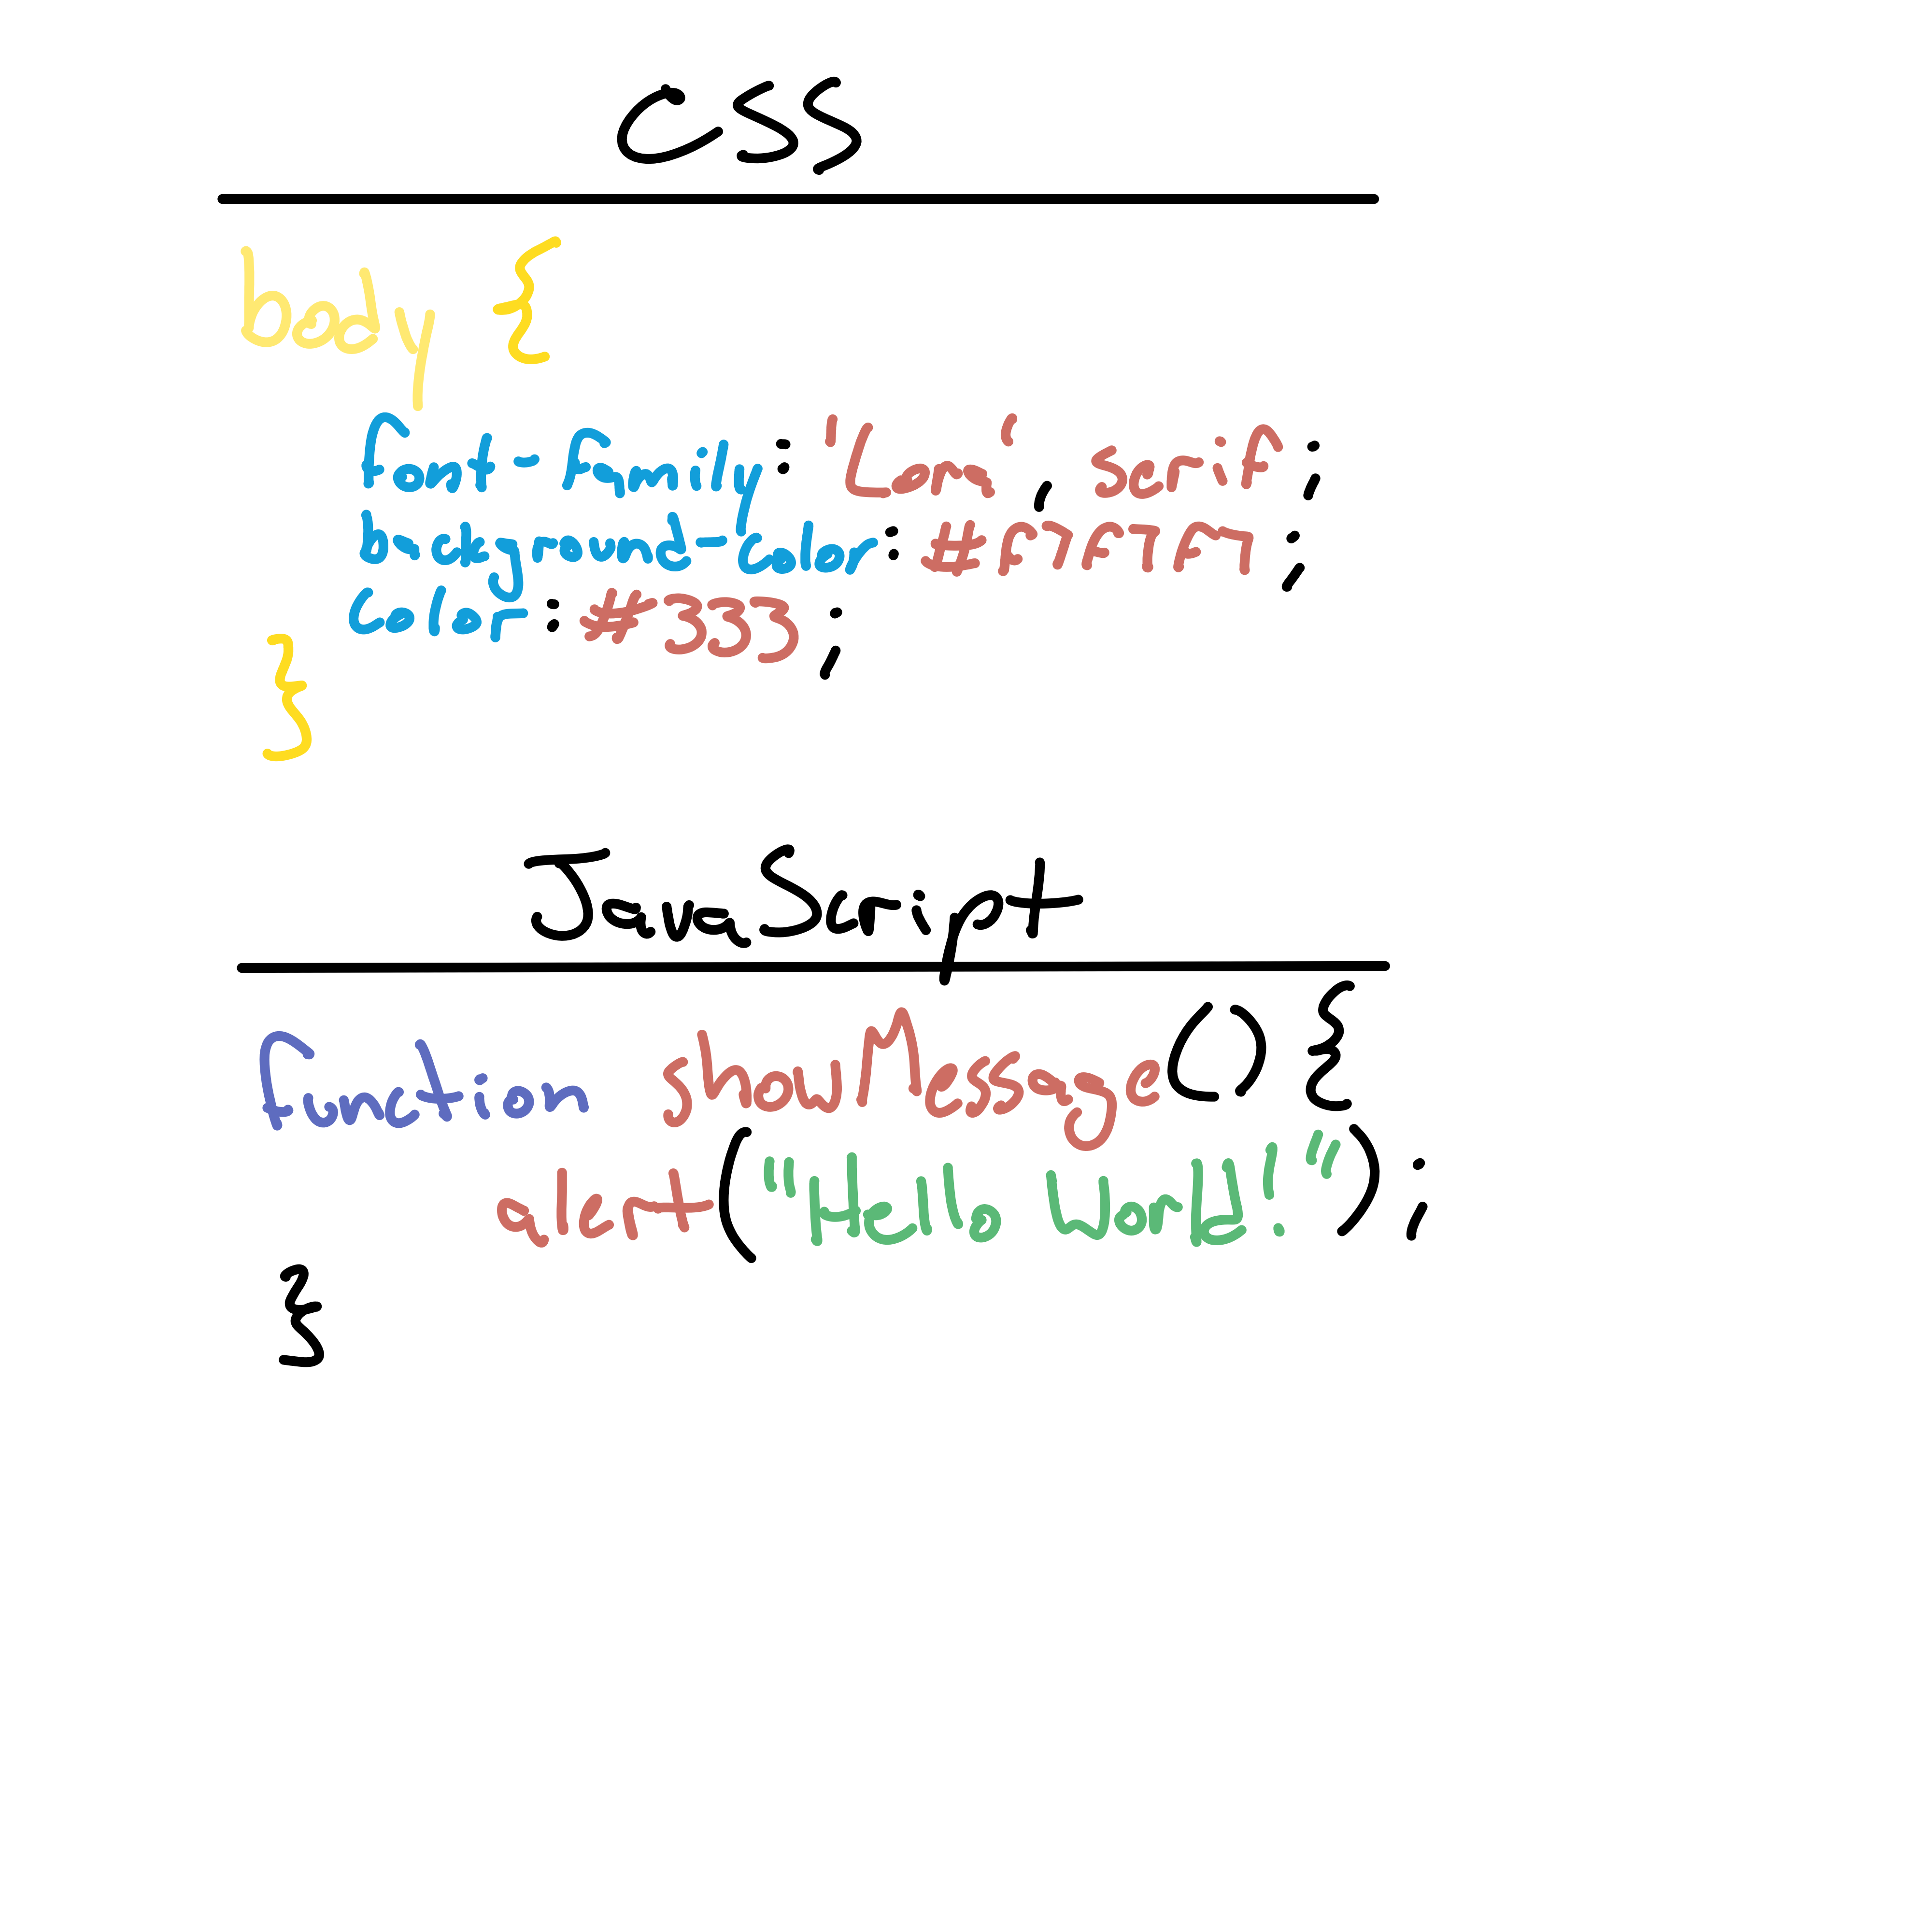 CSS
body {
font-family: 'Lora', serif;
background-color: #f7f7f7;
color: #333;
}
JavaScript
function showMessage() {
alert("Hello World!");
}